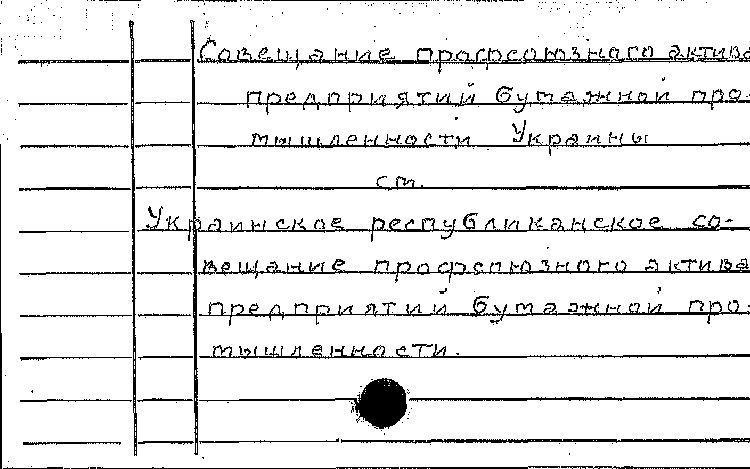 Совещание профсоюзного актива
предприятий бумажной про-
мышленности Украины
см.
Украинское республиканское со-
вещание профсоюзного актива
предприятий бумажной про-
мышленности.